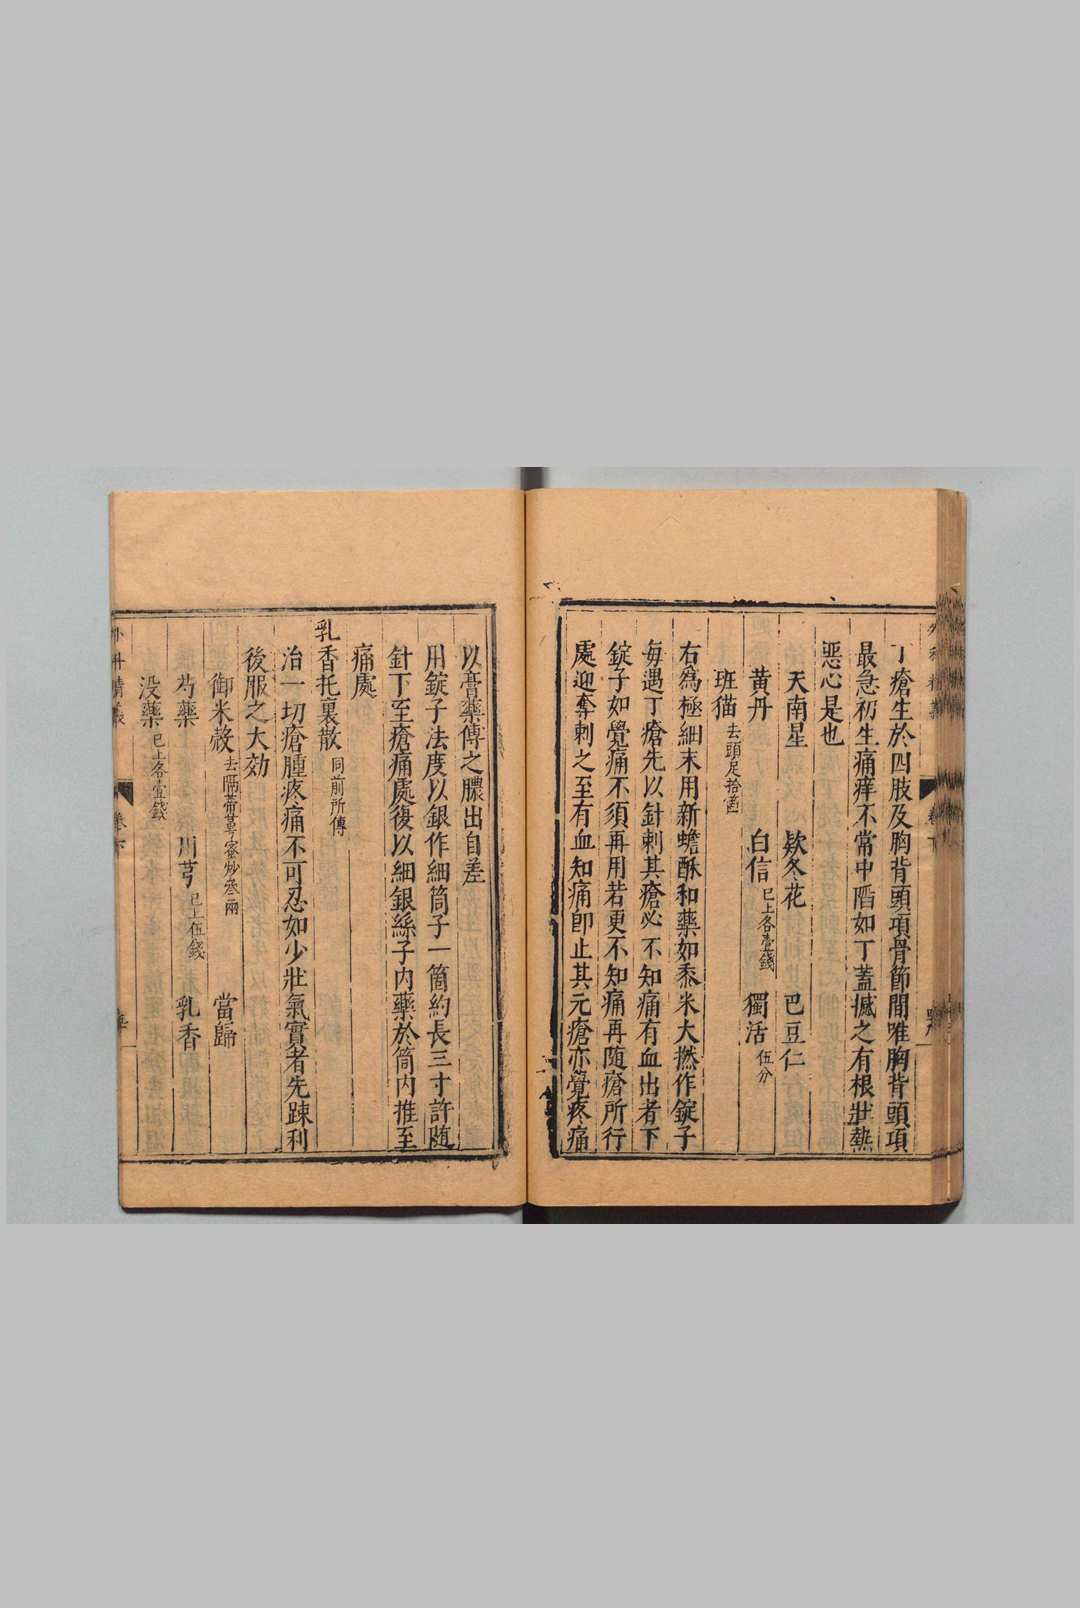 丁瘡生於四肢及胸背頭項骨節間唯胸背頭項
最急初生痛痒不常中陷如丁蓋撼之有根壯熱
惡心是也
天南星 欵冬花 巴豆仁
黃丹 白信已上各壹錢 獨活伍分
班猫去頭足拾箇
右爲極細末用新蟾酥和藥如黍米大撚作錠子
每遇丁瘡先以針刺其瘡必不知痛有血出者下
錠子如覺痛不須再用若更不知痛再随瘡所行
處迎奪刺之至有血知痛卽止其元瘡亦覺疼痛
以膏藥傅之膿出自差
用錠子法度以銀作細筒子一箇約長三寸許随
針下至瘡痛處復以細銀絲子內藥於筒內推至
痛處
乳香托裏散同前所傳
治一切瘡腫疼痛不可忍如少壯氣實者先踈利
後服之大効
御米殼去隔蒂萼蜜炒叁兩 當歸
芍藥 川芎已上伍錢 乳香
没藥已上各壹錢
外科精義 卷下